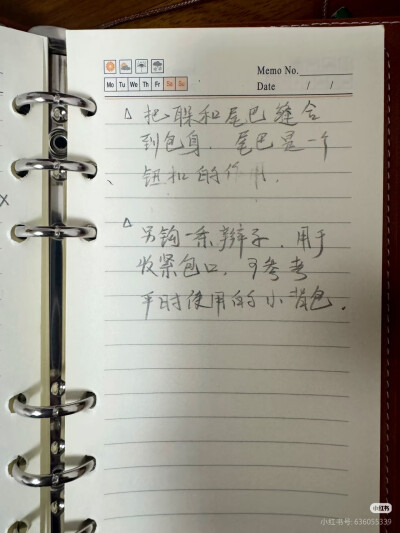 Memo No.
Mo Tu We Th Fr Sa Su
Date / /
△ 把联和尾巴缝合
到包身.尾巴是一个
钮扣的作用.
△ 另钩一条辫子.用于
收紧包口,可参考
平时使用的小背包.
小红书
小红书号: 636055339